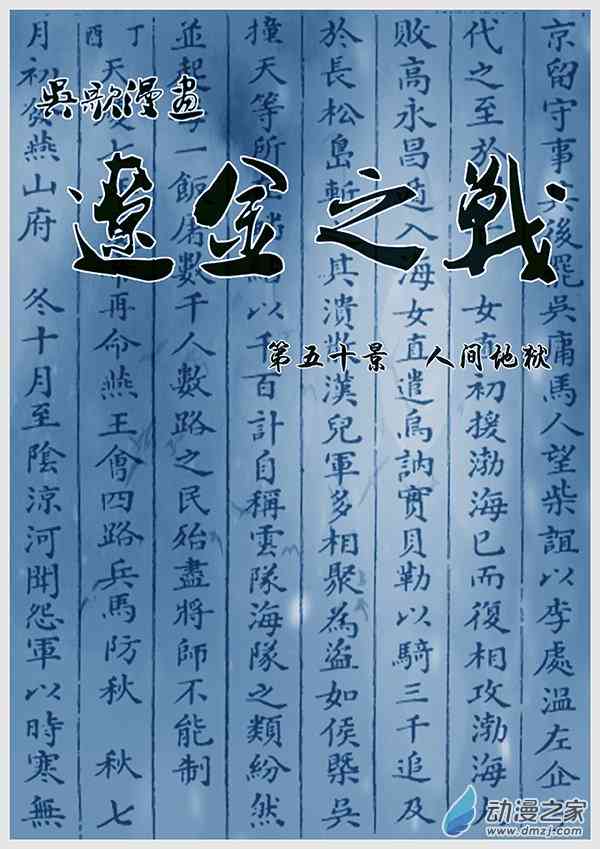 吳歌漫畫
遼金之戰
第五十景 人间地狱
京留守事其後罷吳庸馬人望柴誼以李處溫左企
代之至於女直初援渤海已而復相攻渤海
敗高永昌遁入海女直遣烏訥實貝勒以騎三千追及
於長松島斬其潰散漢兒軍多相聚為盜如侯槩吳
撞天等所以千百計自稱雲隊海隊之類紛然
並起一飯屠數千人數路之民殆盡將師不能制
丁酉
天七再命燕王會四路兵馬防秋 秋七
月初發燕山府 冬十月至陰涼河聞怨軍以時寒無
动漫之家
www.dmzj.com